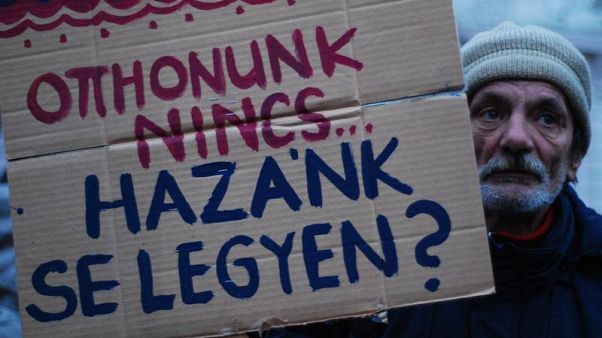 OTTHONUNK
NINCS...
HAZÁNK
SE LEGYEN?